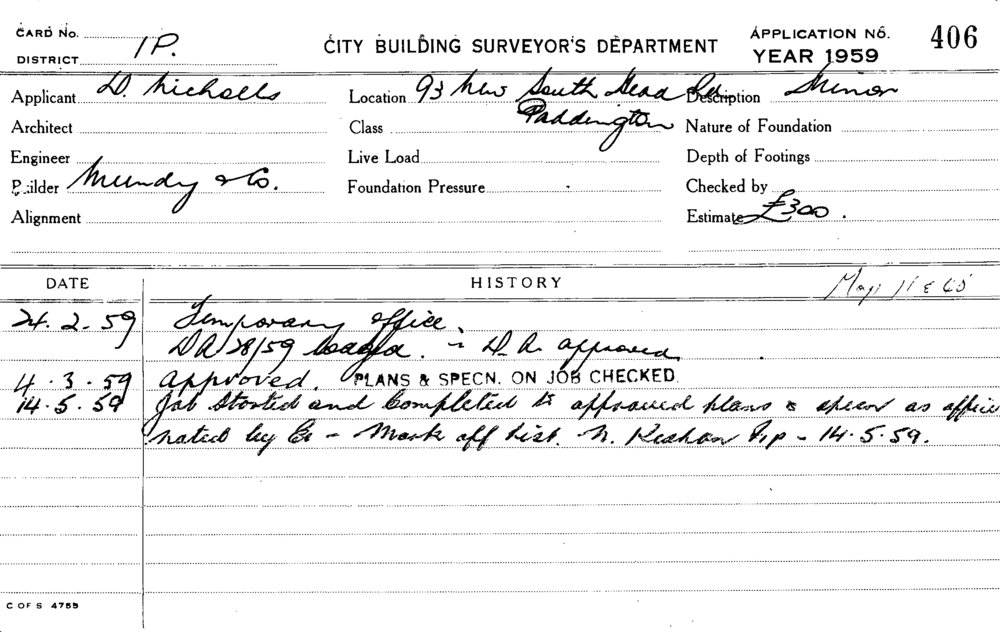 CARD No.
DISTRICT 1P.
CITY BUILDING SURVEYOR'S DEPARTMENT
APPLICATION No. 406
YEAR 1959
Applicant D. Nicholls
Location 93 New South Head Rd. Paddington
Description Minor
Architect
Class
Nature of Foundation
Engineer
Live Load
Depth of Footings
Builder Mundy & Co.
Foundation Pressure
Checked by
Alignment
Estimate £300.
DATE
HISTORY
Map 11 & 65
24.2.59 Temporary office.
DA 28/59 lodged. D.A. approved
4.3.59 Approved. PLANS & SPECN. ON JOB CHECKED.
14.5.59 Job Started and Completed to approved plans & specn as
nated by - Mark off List. N. - 14.5.59.
C OF S 4755